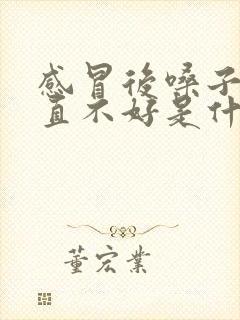 感冒後嗓子
直不好是什
董宏業